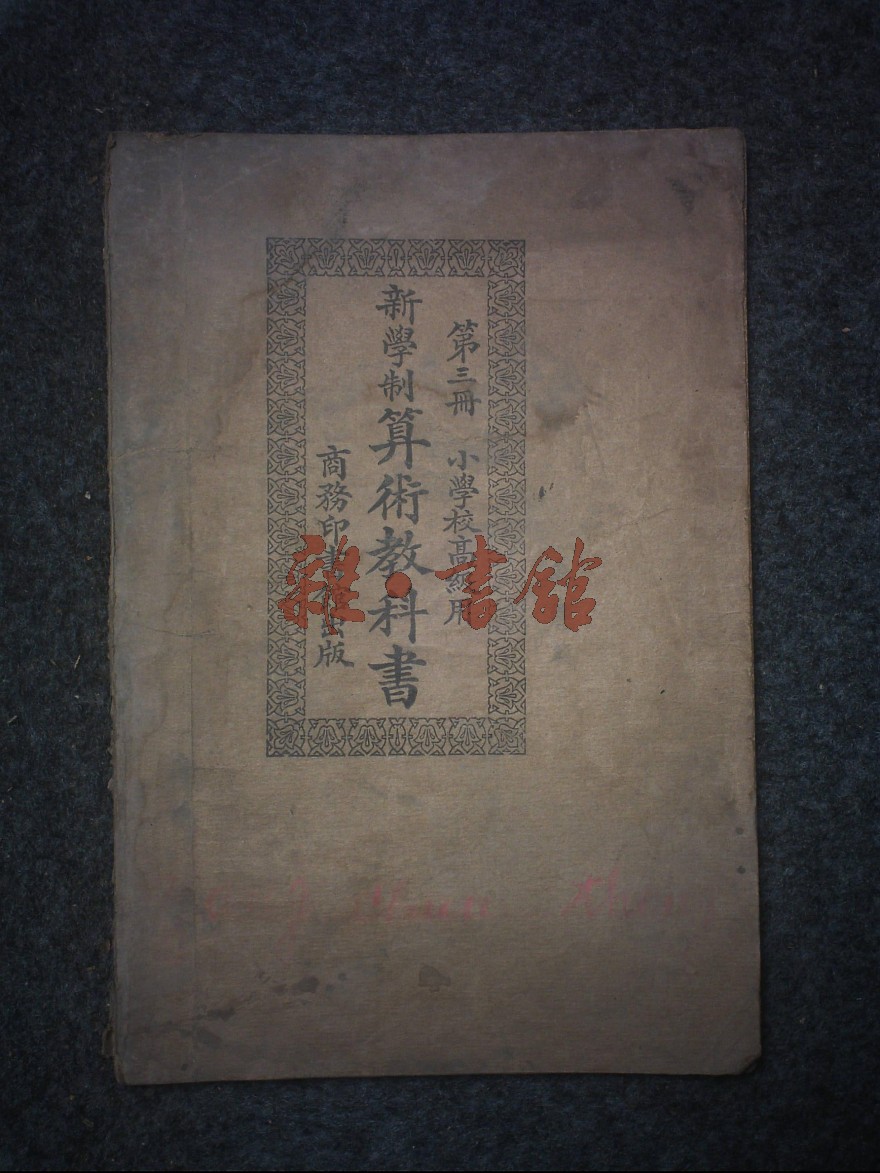 第三冊 小學校高級用
新學制算術教科書
商務印書館出版
雜·書館